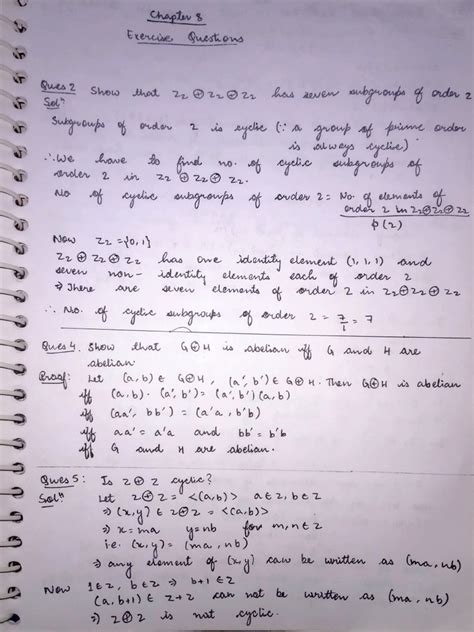 Chapter 8
Exercise Questions
Ques 2 Show that Z2 ⊕ Z2 ⊕ Z2 has seven subgroups of order 2
Solⁿ
Subgroups of order 2 is cyclic (∵ a group of prime order
is always cyclic)
∴ We have to find no. of cyclic subgroups of
order 2 in Z2 ⊕ Z2 ⊕ Z2.
No of cyclic subgroups of order 2 = No. of elements of
order 2 in Z2⊕Z2⊕Z2
φ(2)
Now Z2 = {0,1}
Z2 ⊕ Z2 ⊕ Z2 has one identity element (1,1,1) and
seven non-identity elements each of order 2
⇒ There are seven elements of order 2 in Z2⊕Z2⊕Z2
∴ No. of cyclic subgroups of order 2 = 7/1 = 7
Ques 4. Show that G⊕H is abelian iff G and H are
abelian.
Proof: Let (a,b) ∈ G⊕H, (a',b') ∈ G⊕H. Then G⊕H is abelian
iff (a,b).(a',b') = (a',b')(a,b)
iff (aa', bb') = (a'a, b'b)
iff aa' = a'a and bb' = b'b
iff G and H are abelian.
Ques 5: Is Z⊕Z cyclic?
Solⁿ Let Z⊕Z = <(a,b)> a∈Z, b∈Z
⇒ (x,y) ∈ Z⊕Z = <(a,b)>
⇒ x=ma y=nb for m,n∈Z
i.e. (x,y) = (ma, nb)
⇒ any element of (x,y) can be written as (ma, nb)
Now 1∈Z, b∈Z ⇒ b+1∈Z
(a, b+1) ∈ Z+Z can not be written as (ma, nb)
⇒ Z⊕Z is not cyclic.